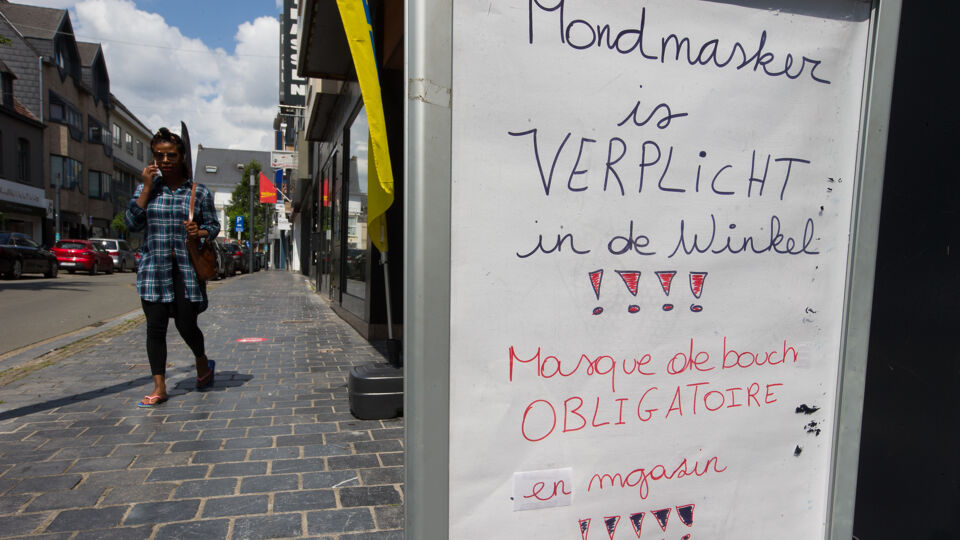 Mondmasker
is
VERPLICHT
in de Winkel
!!!!
Masque de bouch
OBLIGATOIRE
en mgasin
!!!!!